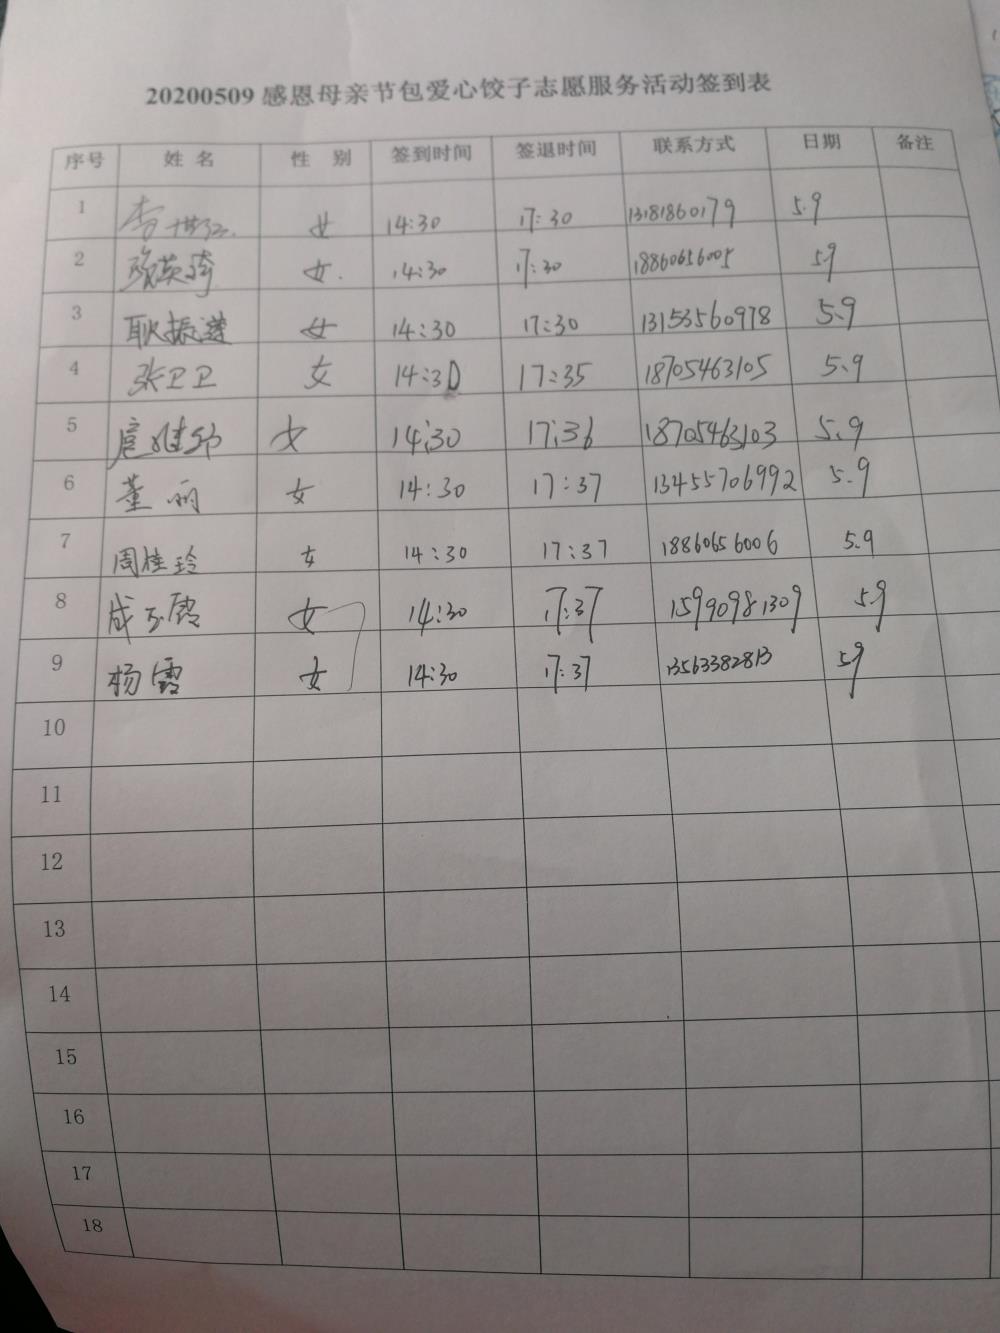 20200509 感恩母亲节包爱心饺子志愿服务活动签到表
序号 姓 名 性 别 签到时间 签退时间 联系方式 日期 备注
1 李世红 女 14:30 17:30 13181860179 5.9
2 英琦 女. 14:30 17:30 18860656005 5.9
3 耿振莲 女 14:30 17:30 13153560978 5.9
4 张卫卫 女 14:30 17:35 18705463105 5.9
5 女 14:30 17:36 18705463103 5.9
6 董 丽 女 14:30 17:37 13455706992 5.9
7 周桂玲 女 14:30 17:37 18860656006 5.9
8 成玉霞 女 14:30 17:37 15990981309 5.9
9 杨霞 女 14:30 17:37 13563382813 5.9
10
11
12
13
14
15
16
17
18